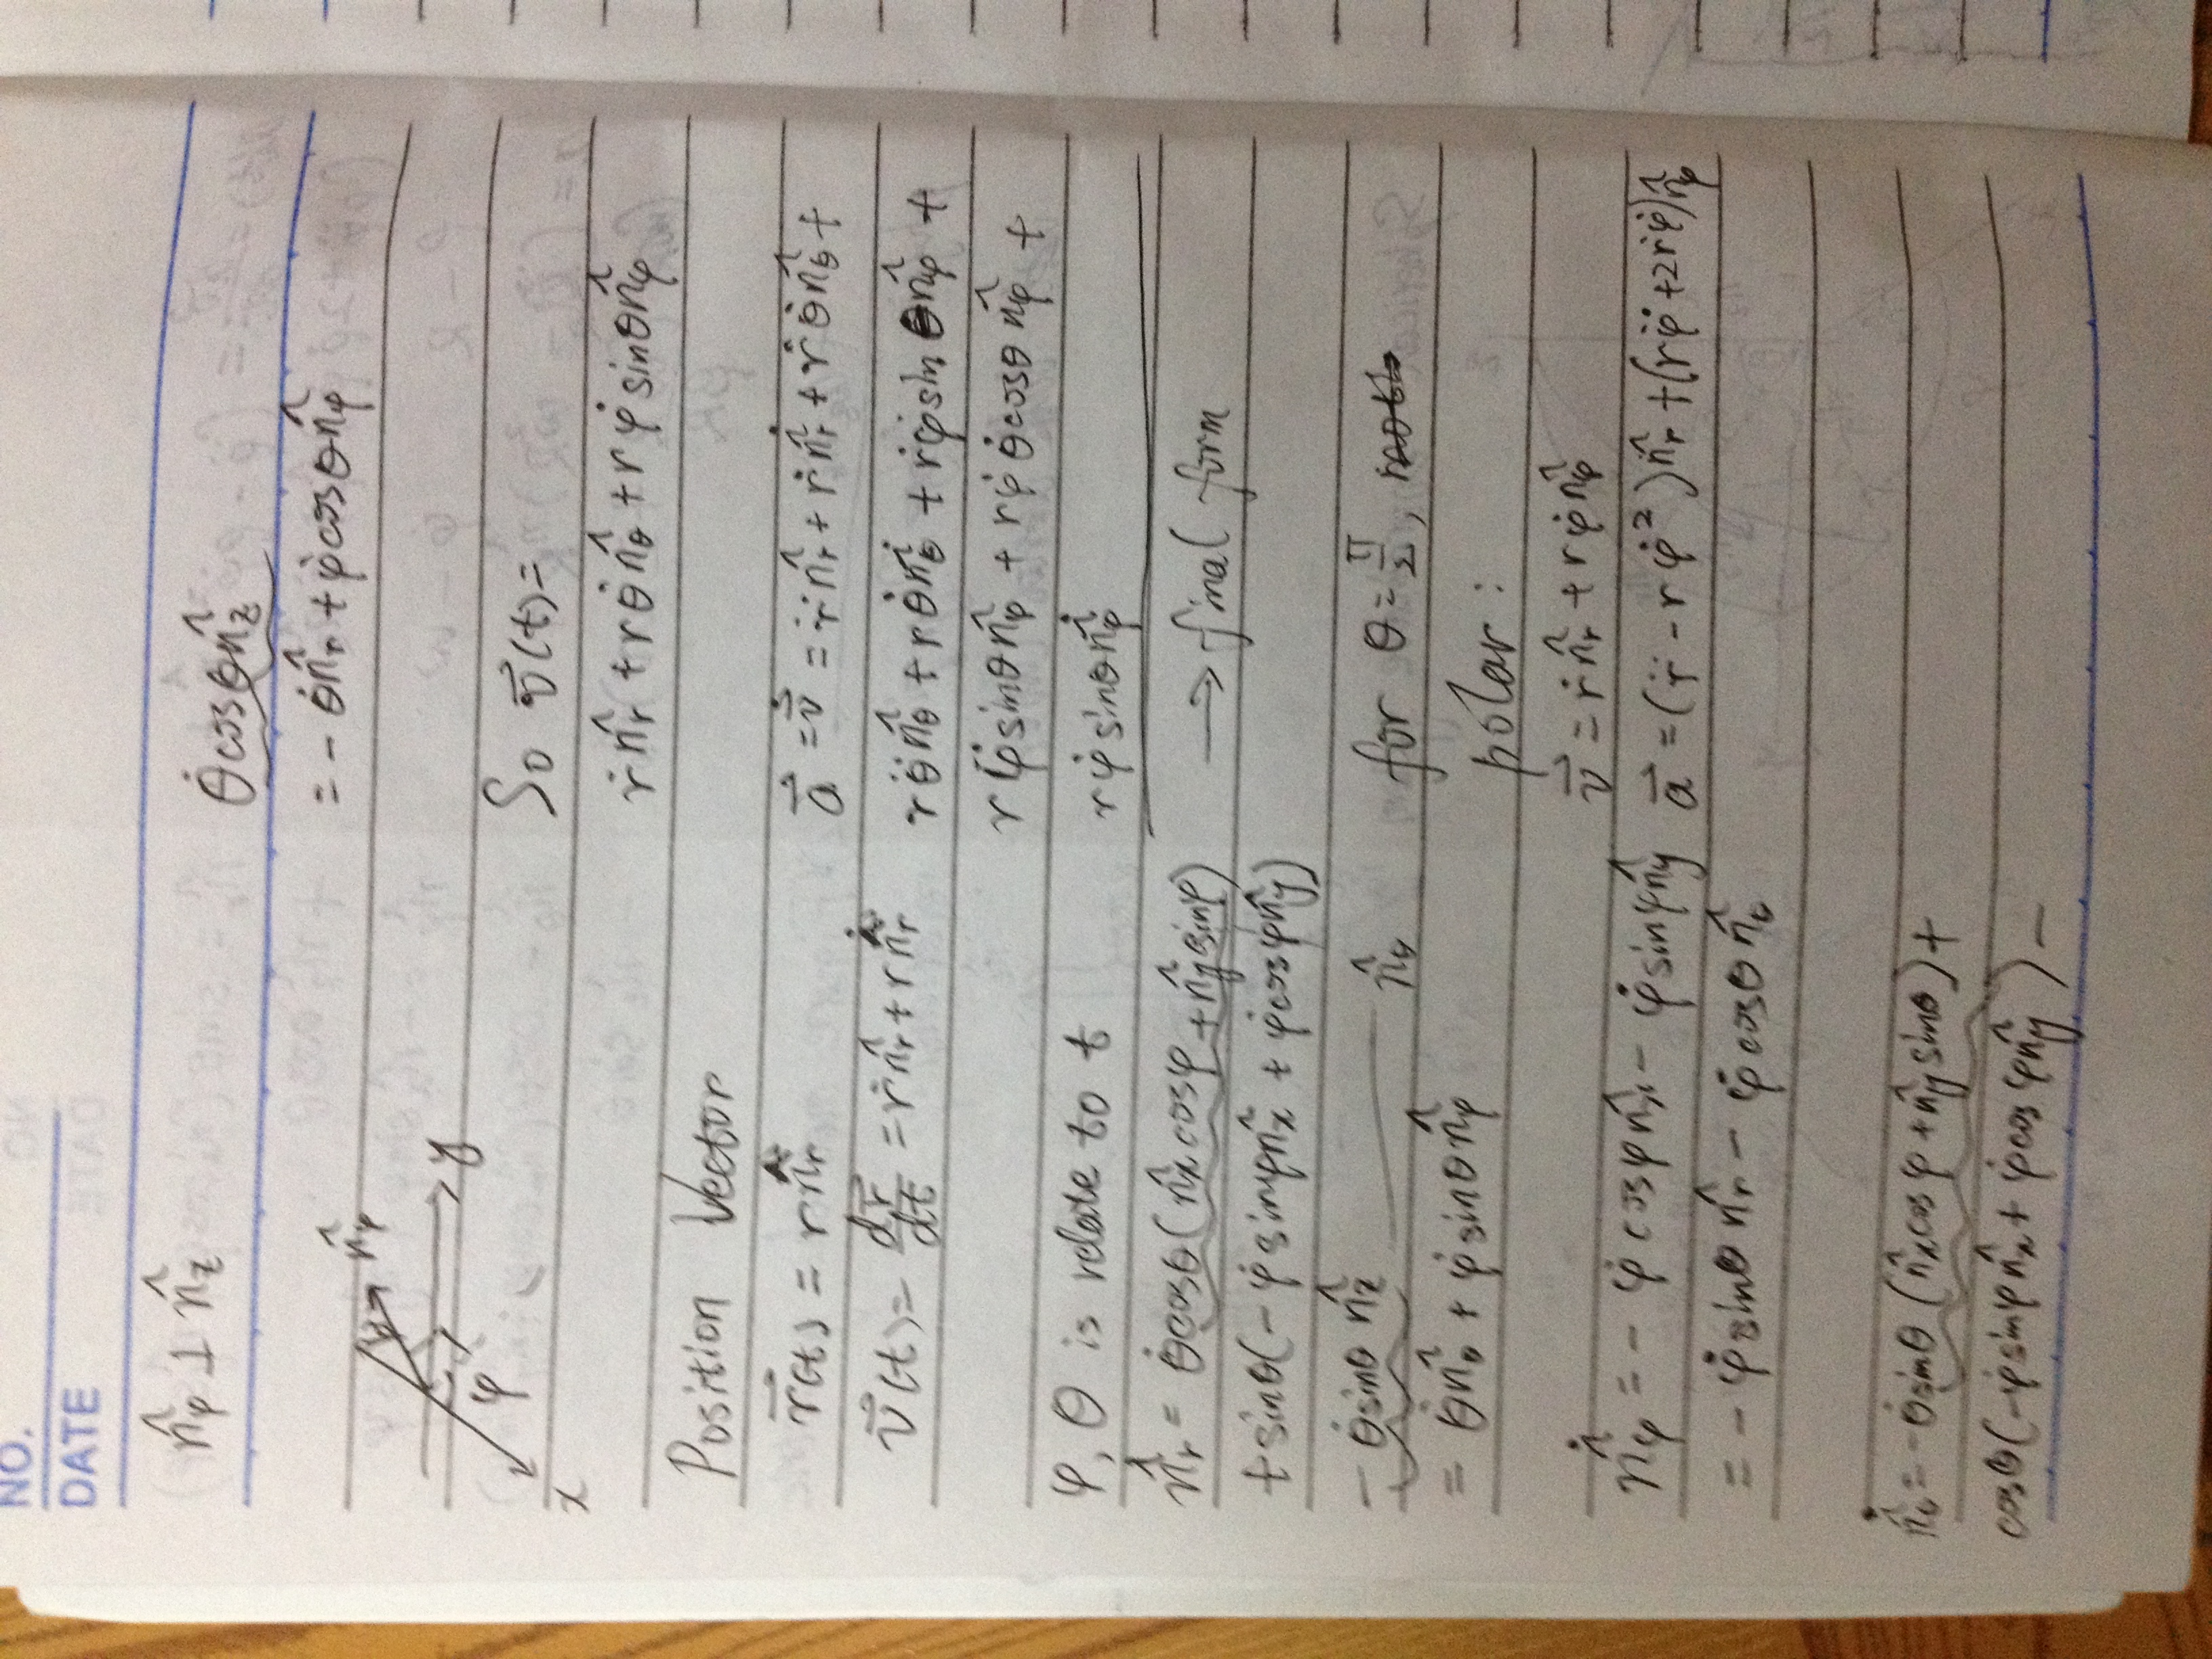 NO.
DATE
n̂φ ⊥ n̂z
n̂φ
y
φ
x
Position Vector
r⃗(t) = r n̂r
v⃗(t) = dr⃗/dt = ṙn̂r + r n̂̇r
φ, θ is relate to t
n̂̇r = θ̇cosθ(n̂x cosφ + n̂y sinφ)
+ sinθ(-φ̇ sinφn̂x + φ̇cosφn̂y)
- θ̇sinθ n̂z n̂θ
= θ̇n̂θ + φ̇ sinθn̂φ
n̂̇φ = - φ̇ cosφn̂x - φ̇sinφn̂y
= - φ̇sinθ n̂r - φ̇ cosθ n̂θ
n̂̇θ = -θ̇sinθ (n̂xcosφ + n̂y sinθ) +
cosθ(-φ̇sinφn̂x + φ̇cosφn̂y) -
θ̇cosθn̂z
= - θ̇n̂r + φ̇cosθn̂φ
So v⃗(t)=
ṙn̂r + rθ̇n̂θ + rφ̇ sinθn̂φ
a⃗ = v⃗̇ = r̈n̂r + ṙn̂̇r + ṙθ̇n̂θ +
rθ̈n̂θ + rθ̇n̂̇θ + ṙφ̇sinθn̂φ +
rφ̈sinθn̂φ + rφ̇θ̇cosθ n̂φ +
rφ̇sinθn̂̇φ
→ final form
for θ = π/2,
polar :
v⃗ = ṙn̂r + rφ̇n̂φ
a⃗ = (r̈ - rφ̇²)n̂r + (rφ̈ + 2ṙφ̇)n̂φ